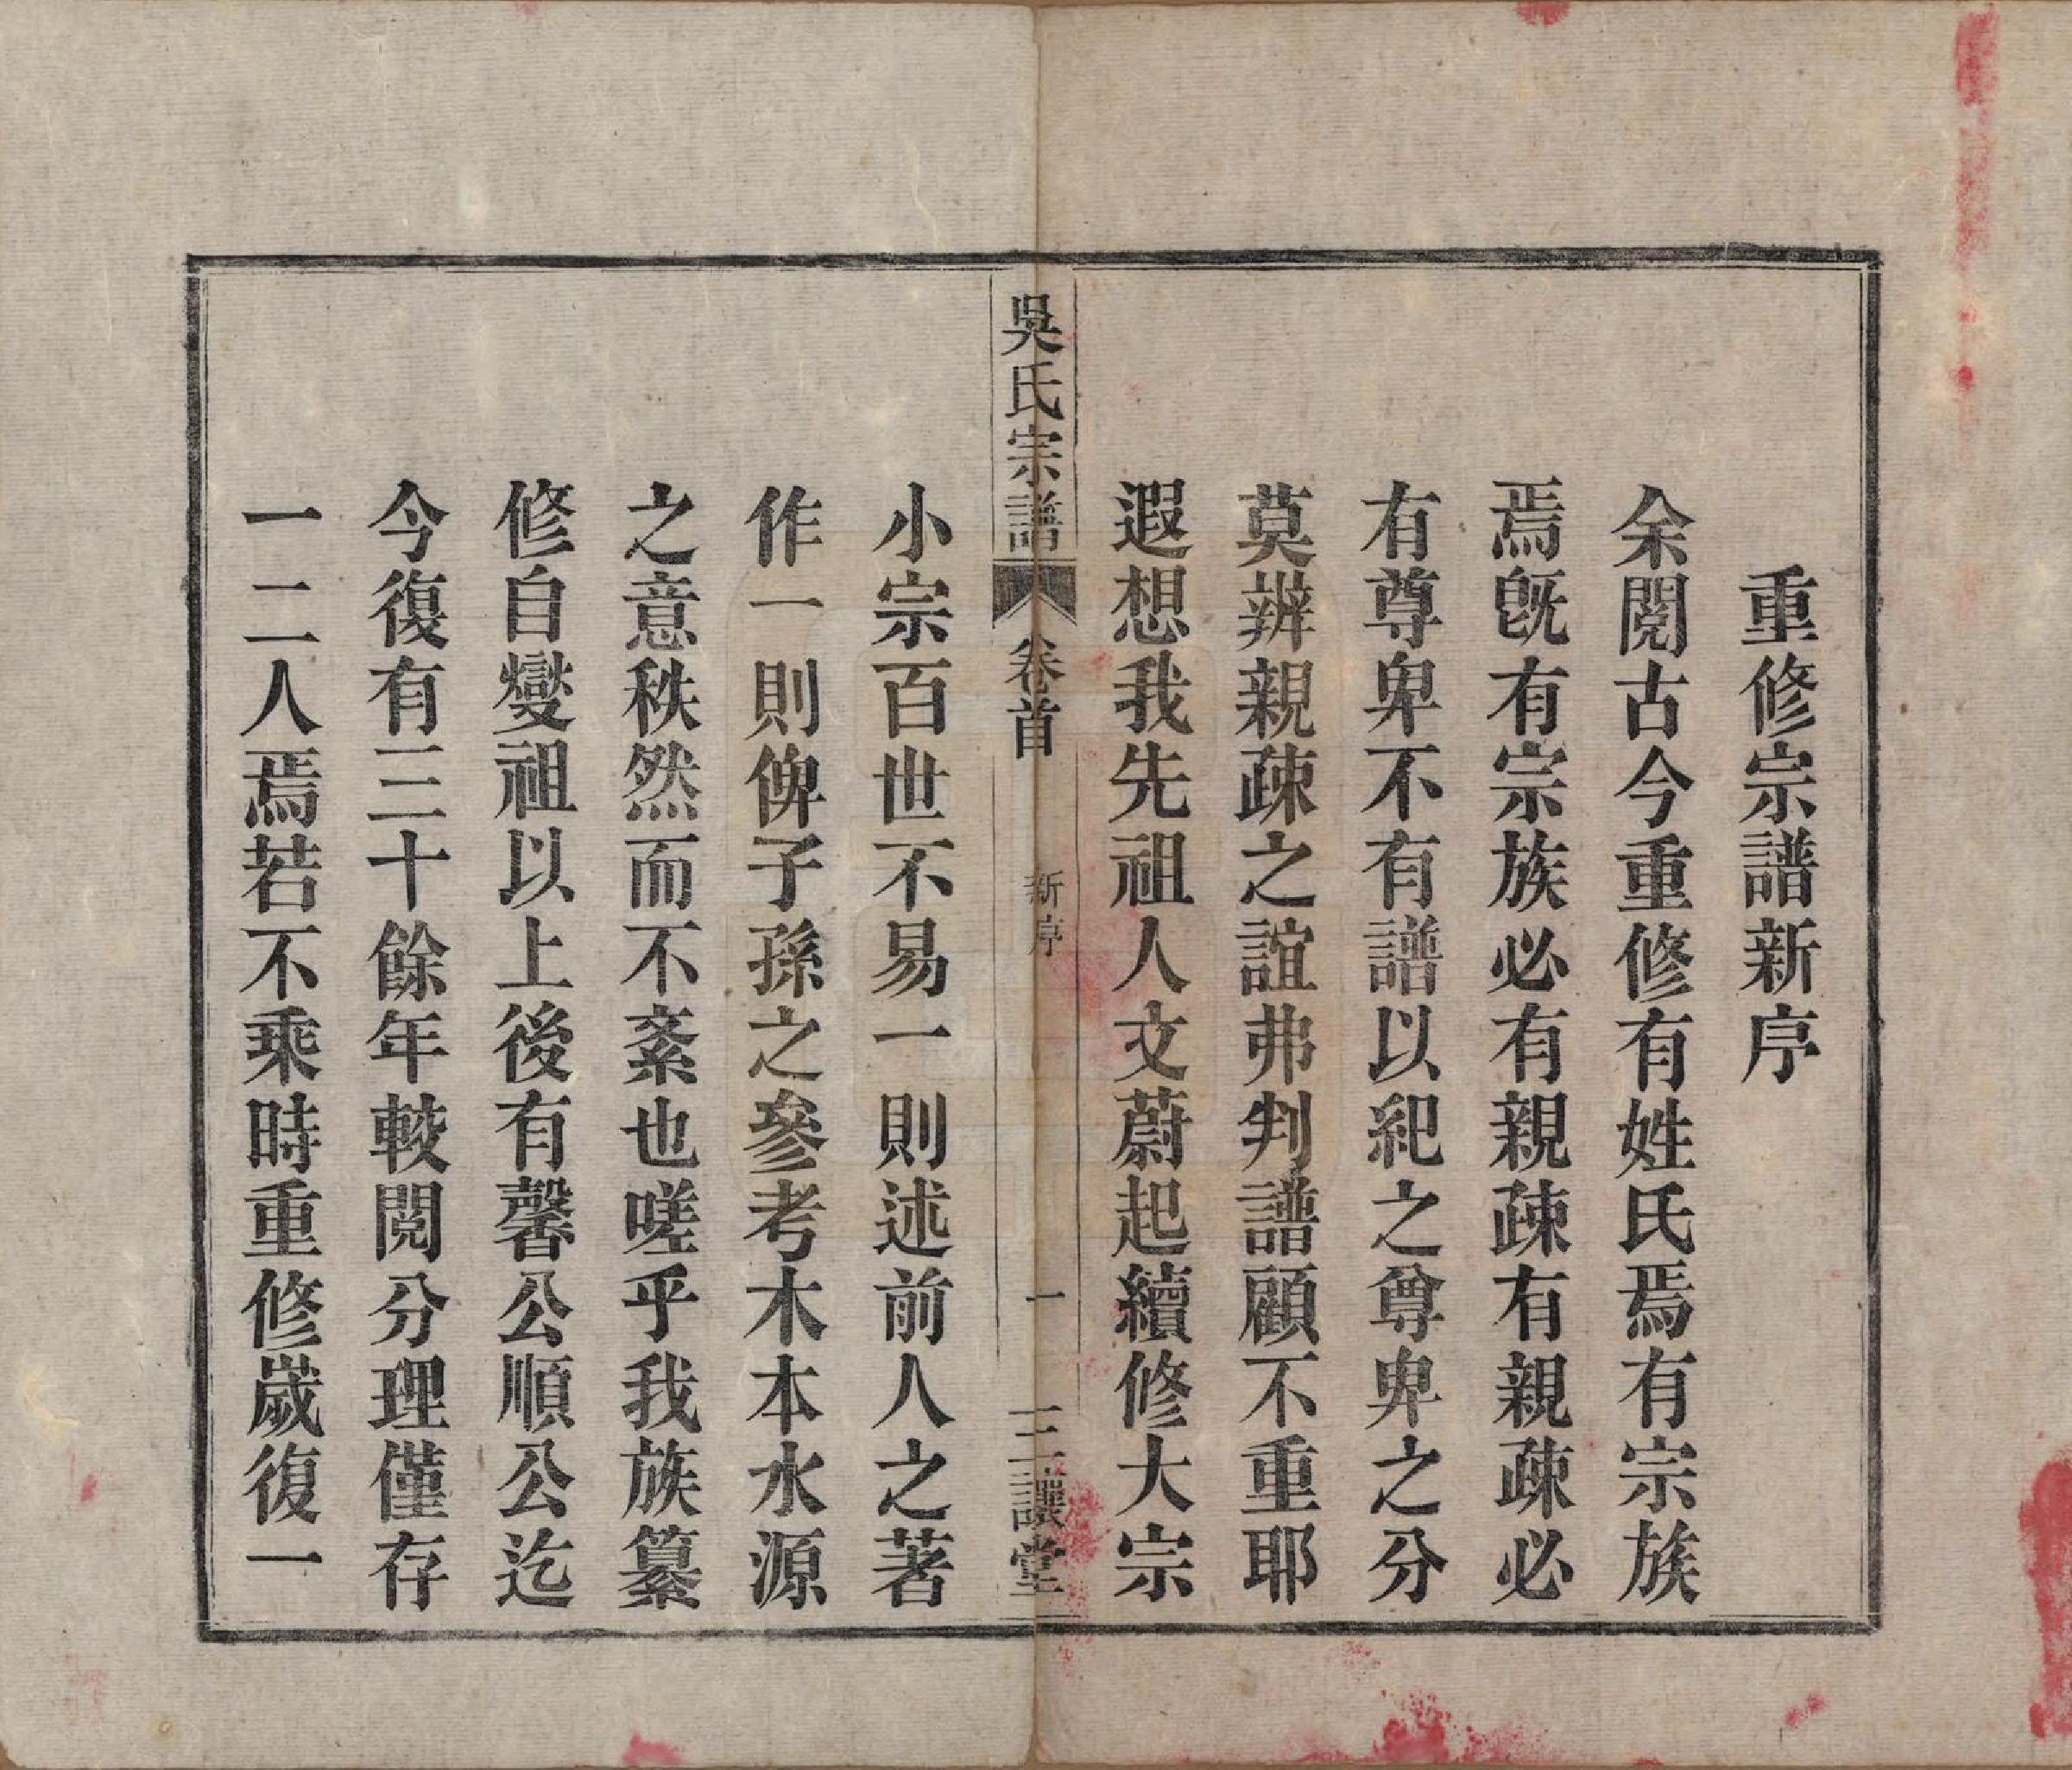 重修宗譜新序
余閱古今重修有姓氏焉有宗族
焉旣有宗族必有親疎有親疎必
有尊卑不有譜以紀之尊卑之分
莫辨親疎之誼弗判譜顧不重耶
遐想我先祖人文蔚起續修大宗
吳氏宗譜 卷首 新序 一 三讓堂
小宗百世不易一則述前人之著
作一則俾子孫之參考木本水源
之意秩然而不紊也嗟乎我族纂
修自燮祖以上後有馨公順公迄
今復有三十餘年較閱分理僅存
一二人焉若不乘時重修歲復一